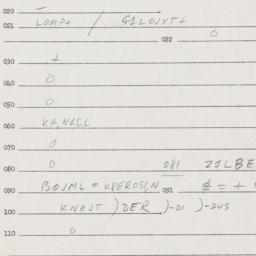 020 —
021 LOMPA / GALOSYTA
022 0
030 +
040 0
050 0
060 KA, NAGL
070 0
080 0 081 ZILBE
090 BOJML = KEROSIN 091 $ = +
100 KNOJT ) DER )-DI )-DUS
110 0